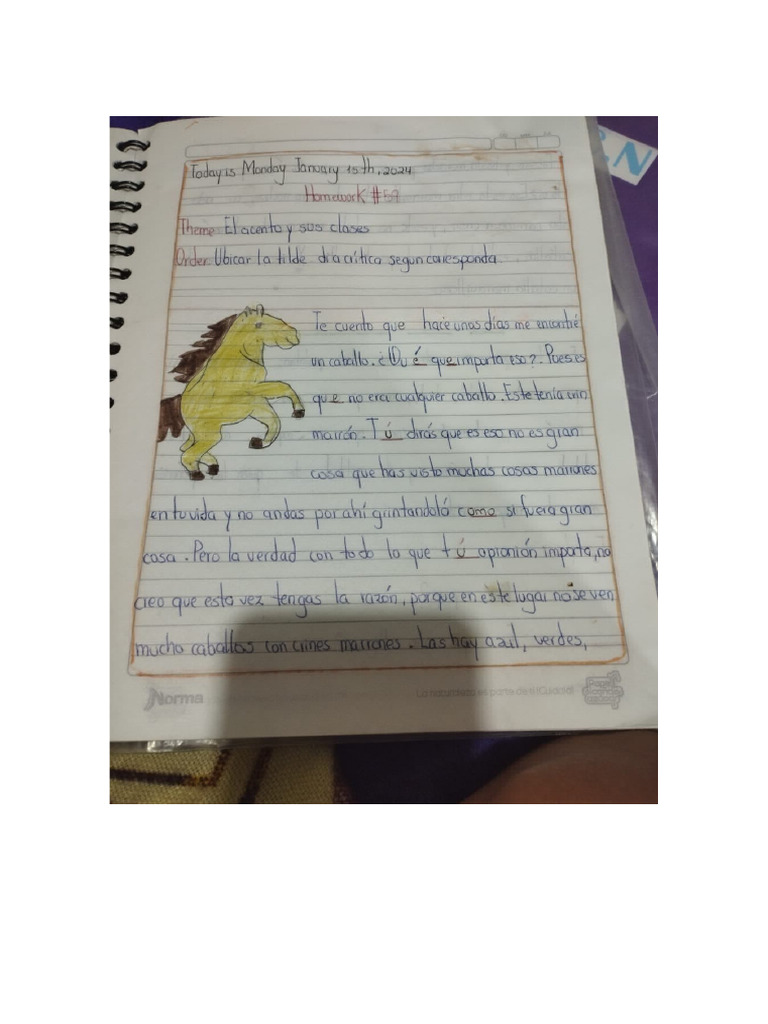 Today is Monday January 15th, 2024
Homework #59
Theme: El acento y sus clases
Order: Ubicar la tilde diacrítica segun corresponda.
Te cuento que hace unos días me encontré
un caballo. ¿Qué que importa eso?. Pues es
que no era cualquier caballo. Este tenía crin
marrón. Tú dirás que es eso no es gran
cosa que has visto muchas cosas marrones
en tu vida y no andas por ahí gritandoló como si fuera gran
cosa. Pero la verdad con todo lo que tú opionión importa, no
creo que esta vez tengas la razón, porque en este lugar no se ven
mucho caballos con crines marrones. Las hay azul, verdes,
Norma
La naturaleza es parte de ti ¡Cuídala!